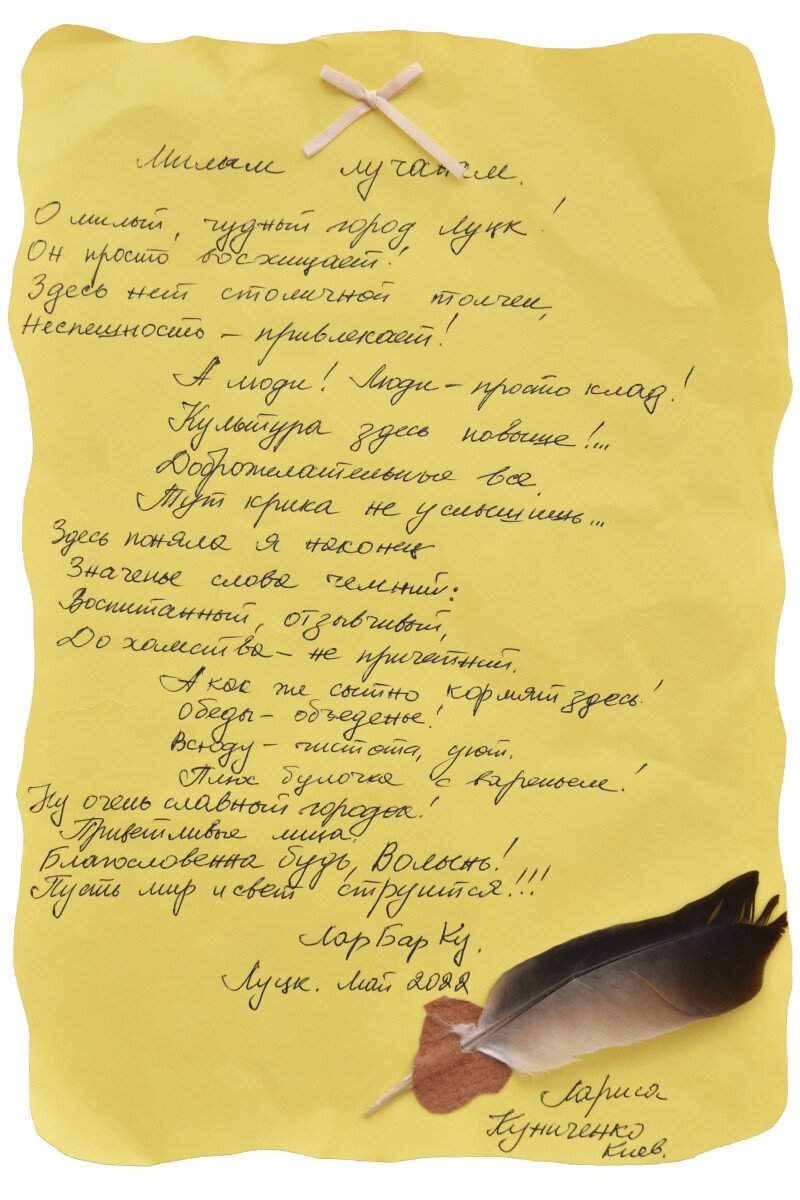 Милым лучанам.
О милый, чудный город Луцк!
Он просто восхищает!
Здесь нет столичной толчеи,
Неспешность – привлекает!
А люди! Люди – просто клад!
Культура здесь повыше!...
Доброжелательные все
Тут крика не услышишь...
Здесь поняла я наконец
Значенье слова чемний:
Воспитанный, отзывчивый,
До хамства – не причетний.
А как же сытно кормят здесь!
Обеды – объеденье!
Всюду – чистота, уют.
Плюс булочка с вареньем!
Ну очень славный городок!
Приветливые лица.
Благословенна будь, Волынь!
Пусть мир и свет струится!!!
ЛарБарКу.
Луцк. Май 2022
Лариса
Куниченко
Киев.